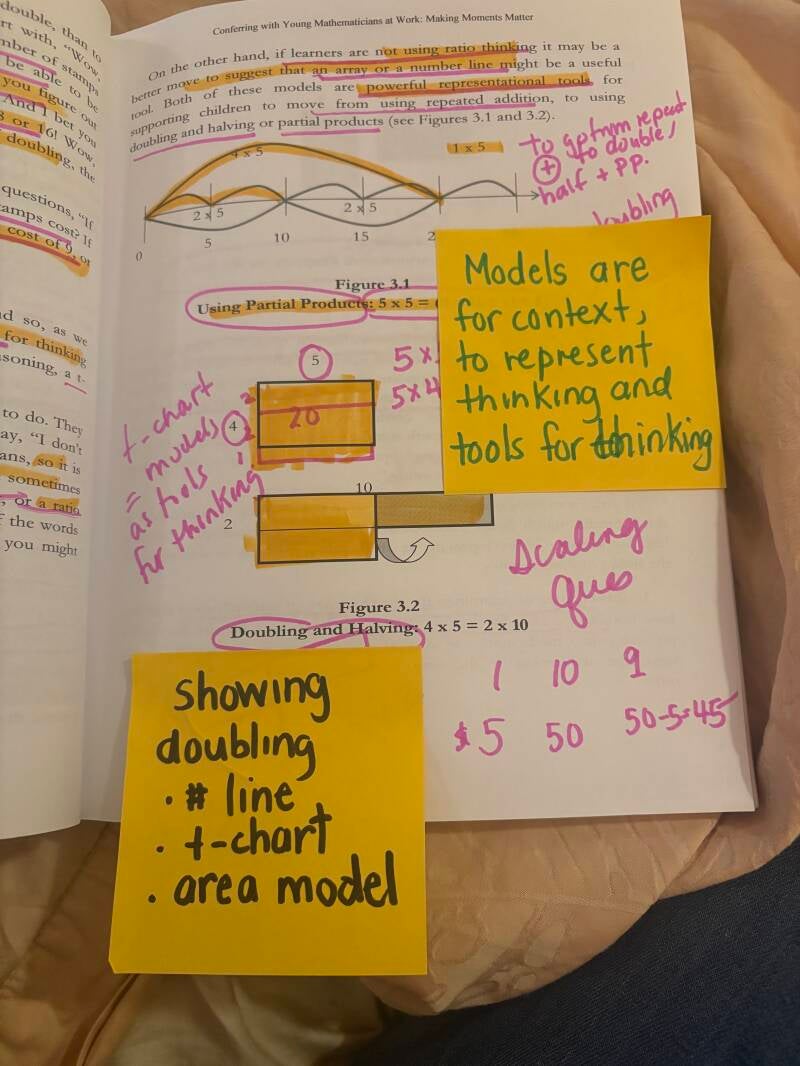 double, than to
rt with, "Wow,
mber of stamps
be able to be
you figure out
And I bet you
8 or 16! Wow,
doubling, the
questions, "If
tamps cost? If
cost of 9, or
nd so, as we
for thinking
soning, a t-
to do. They
ay, "I don't
ans, so it is
sometimes
, or a ratio
f the words
you might
Conferring with Young Mathematicians at Work: Making Moments Matter
On the other hand, if learners are not using ratio thinking it may be a
better move to suggest that an array or a number line might be a useful
tool. Both of these models are powerful representational tools for
supporting children to move from using repeated addition, to using
doubling and halving or partial products (see Figures 3.1 and 3.2).
to go from repeat
+ to double,
half + PP.
doubling
4 x 5
1 x 5
2 x 5
2 x 5
0
5
10
15
2
Figure 3.1
Using Partial Products: 5 x 5 =
Models are
for context,
to represent
thinking and
tools for thinking
5
5 x
5 x 4
4
2
2
1
20
t-chart
= models
as tools
for thinking
10
2
Scaling
Ques
Figure 3.2
Doubling and Halving: 4 x 5 = 2 x 10
1 10 9
$5 50 50-5=45
showing
doubling
· # line
· t-chart
· area model